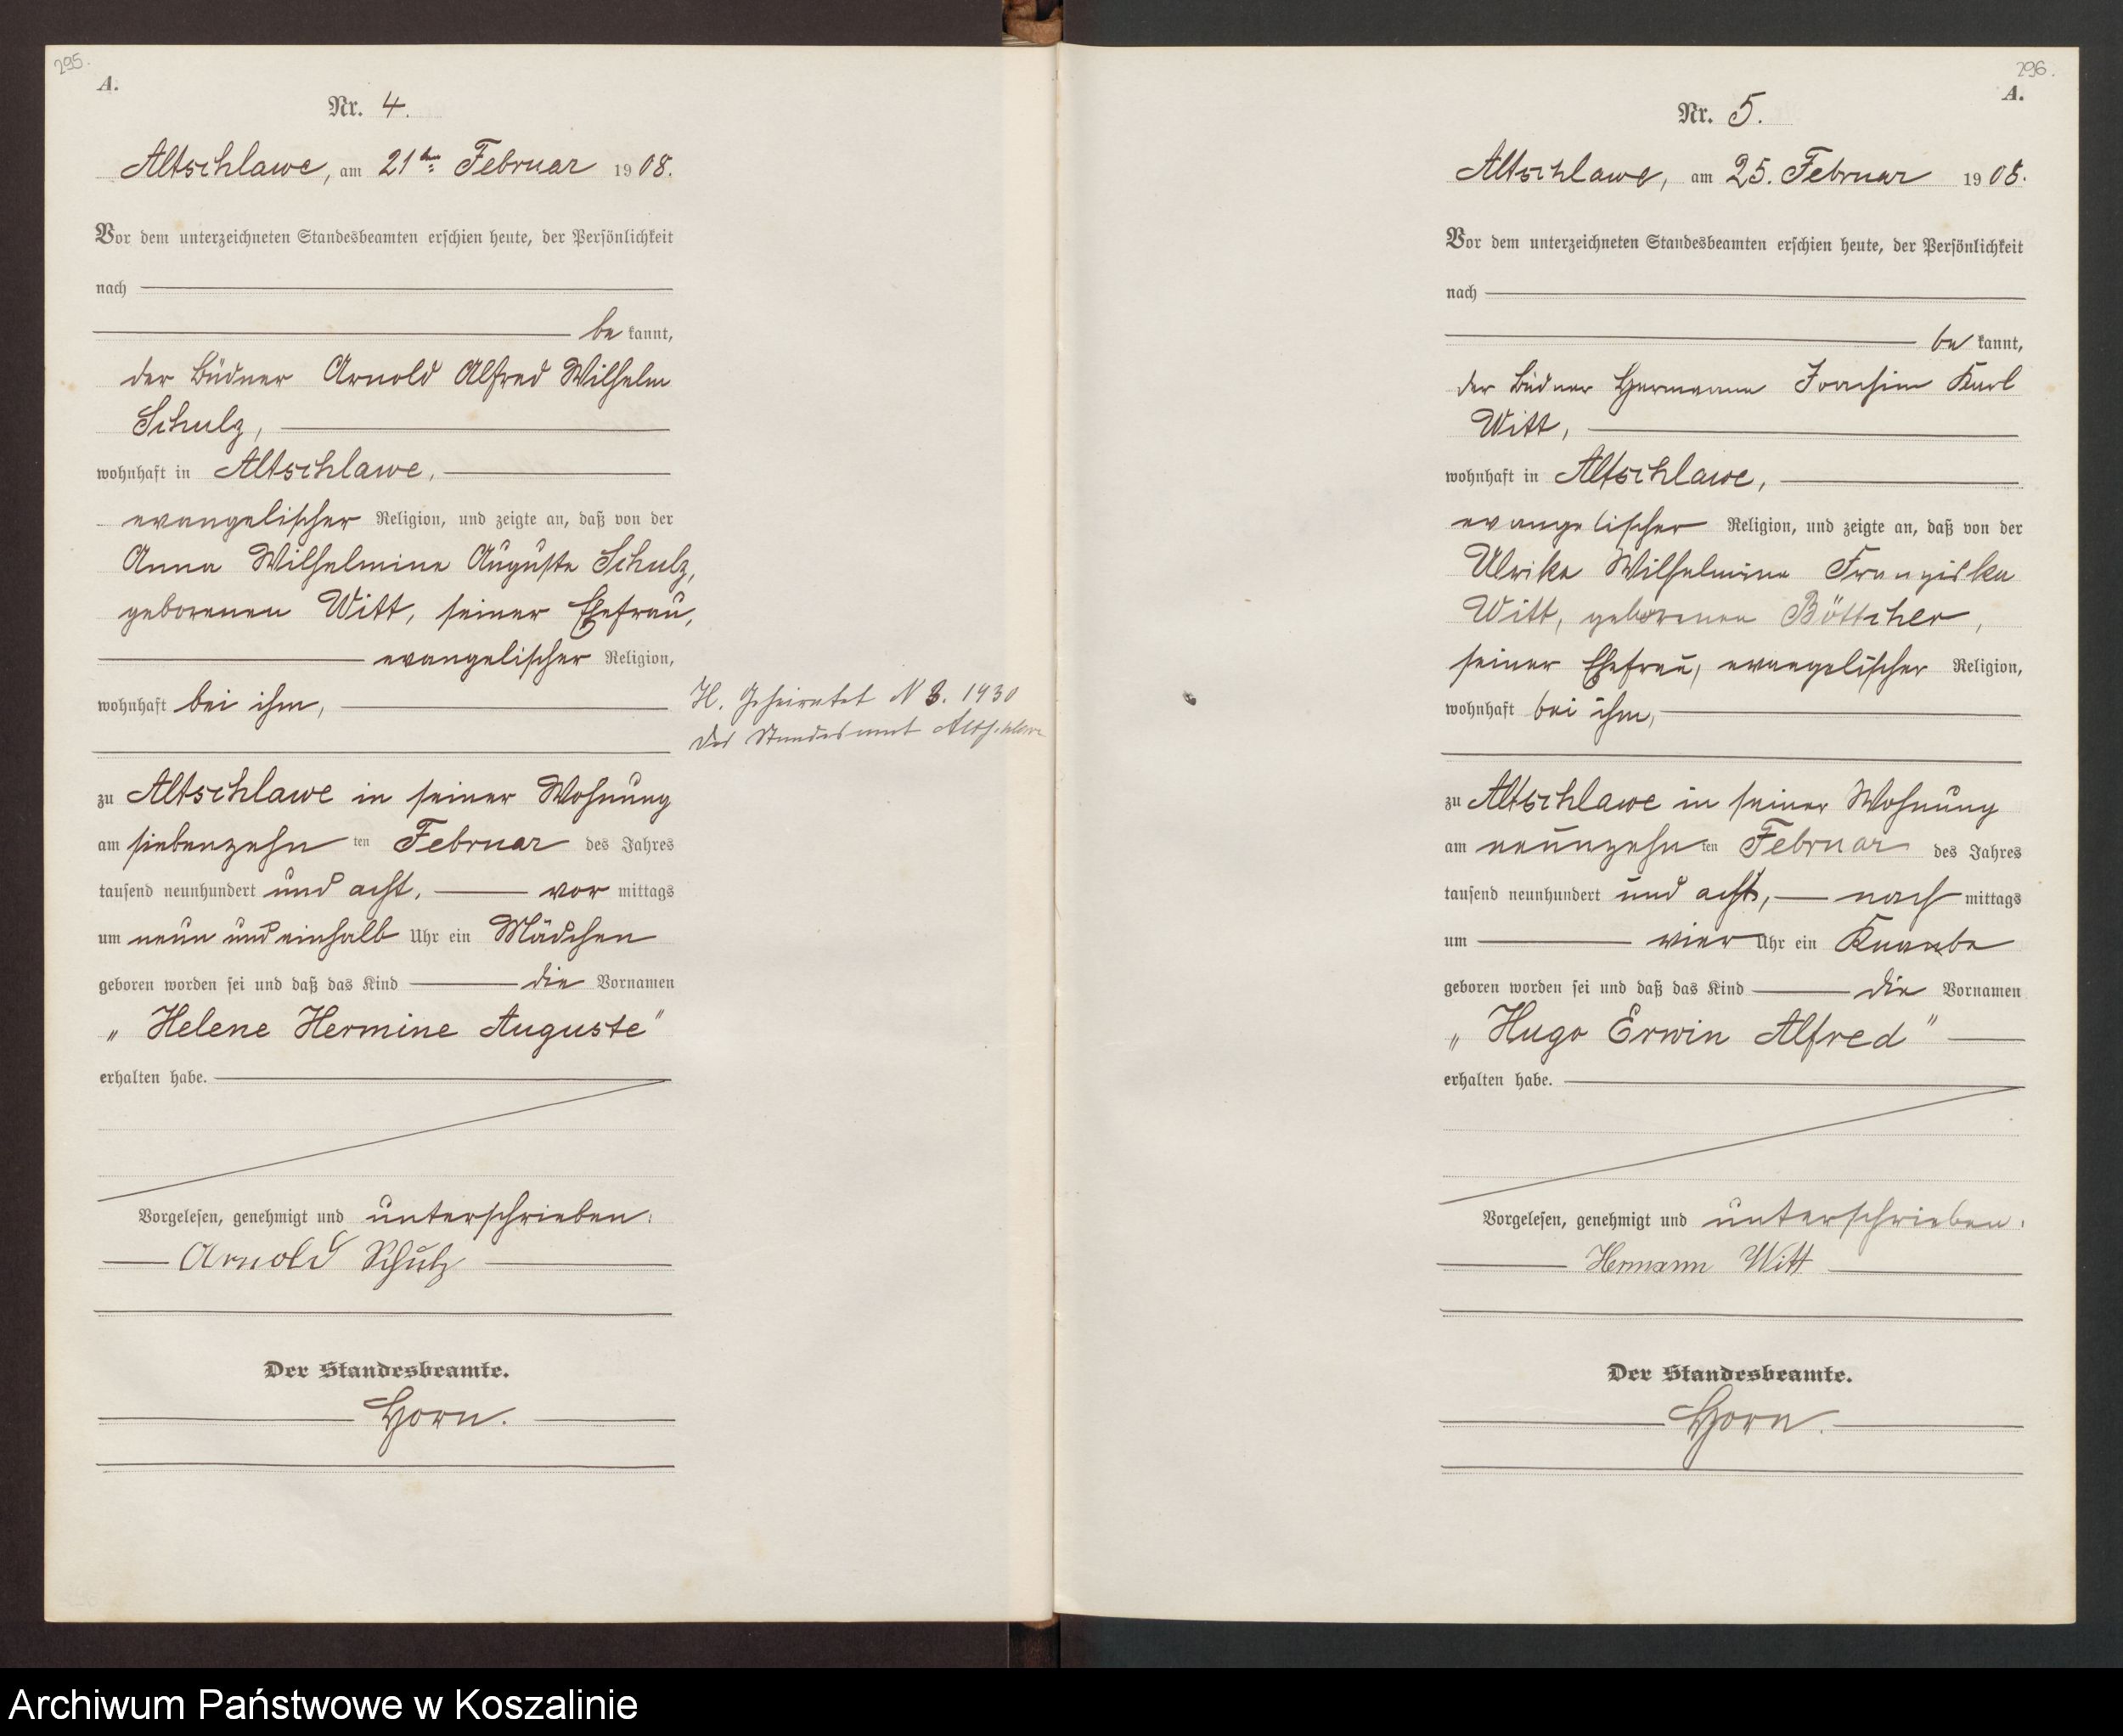 295.
A.
Nr. 4.
Altschlawe, am 21ten Februar 1908.
Vor dem unterzeichneten Standesbeamten erschien heute, der Persönlichkeit
nach
be kannt,
der Büdner Arnold Alfred Wilhelm
Schulz,
wohnhaft in Altschlawe,
evangelischer Religion, und zeigte an, daß von der
Anna Wilhelmine Auguste Schulz,
geborenen Witt, seiner Ehefrau,
evangelischer Religion,
wohnhaft bei ihm,
zu Altschlawe in seiner Wohnung
am siebenzehn ten Februar des Jahres
tausend neunhundert und acht, vor mittags
um neun und einhalb Uhr ein Mädchen
geboren worden sei und daß das Kind die Vornamen
„Helene Hermine Auguste"
erhalten habe.
Vorgelesen, genehmigt und unterschrieben:
Arnold Schulz
Der Standesbeamte.
Horn.
H. Geheiratet N 8. 1930
des Standesamt Altschlawe
296.
A.
Nr. 5.
Altschlawe, am 25. Februar 1908.
Vor dem unterzeichneten Standesbeamten erschien heute, der Persönlichkeit
nach
be kannt,
der Büdner Hermann Joachim Karl
Witt,
wohnhaft in Altschlawe,
evangelischer Religion, und zeigte an, daß von der
Ulrike Wilhelmine Franziska
Witt, geborenen Böttcher,
seiner Ehefrau, evangelischer Religion,
wohnhaft bei ihm,
zu Altschlawe in seiner Wohnung
am neunzehn ten Februar des Jahres
tausend neunhundert und acht, nach mittags
um vier Uhr ein Knabe
geboren worden sei und daß das Kind die Vornamen
„Hugo Erwin Alfred"
erhalten habe.
Vorgelesen, genehmigt und unterschrieben:
Hermann Witt
Der Standesbeamte.
Horn.
Archiwum Państwowe w Koszalinie